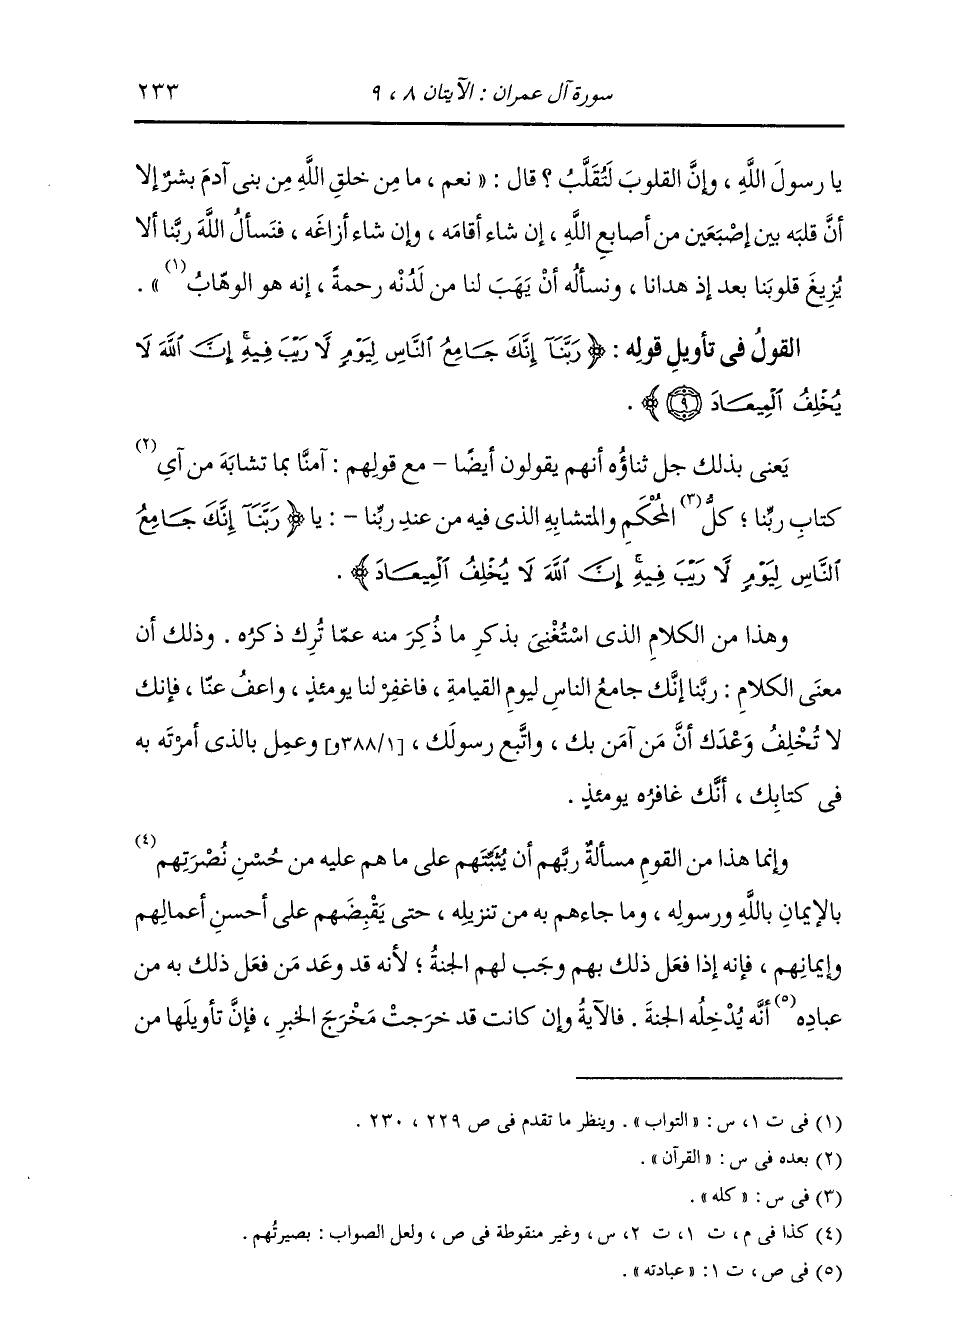 سورة آل عمران : الآيتان ٨ ، ٩ ٢٣٣
يا رسولَ اللَّهِ ، وإنَّ القلوبَ لَتُقَلَّبُ ؟ قال : « نعم ، ما مِن خلقِ اللَّهِ مِن بنى آدمَ بشرٌ إلا
أنَّ قلبَه بين إصْبَعَين من أصابعِ اللَّهِ ، إن شاء أقامَه ، وإن شاء أزاغَه ، فنَسألُ اللَّهَ ربَّنا ألا
يُزِيغَ قلوبَنا بعد إذ هدانا ، ونسألُه أنْ يَهَبَ لنا من لَدُنْه رحمةً ، إنه هو الوهّابُ (١) » .
القولُ فى تأويلِ قولِه : ﴿ رَبَّنَآ إِنَّكَ جَامِعُ ٱلنَّاسِ لِيَوْمٍ لَّا رَيْبَ فِيهِۚ إِنَّ ٱللَّهَ لَا
يُخْلِفُ ٱلْمِيعَادَ ٩ ﴾ .
يَعنى بذلك جل ثناؤُه أنهم يقولون أيضًا - مع قولِهم : آمنَّا بما تشابَهَ من آىِ (٢)
كتابِ ربِّنا ؛ كلُّ (٣) المُحْكَمِ والمتشابِهِ الذى فيه من عندِ ربِّنا - : يا ﴿ رَبَّنَآ إِنَّكَ جَامِعُ
ٱلنَّاسِ لِيَوْمٍ لَّا رَيْبَ فِيهِۚ إِنَّ ٱللَّهَ لَا يُخْلِفُ ٱلْمِيعَادَ ﴾ .
وهذا من الكلامِ الذى اسْتُغْنِىَ بذكرِ ما ذُكِرَ منه عمّا تُرِك ذكرُه . وذلك أن
معنَى الكلامِ : ربَّنا إنَّك جامعُ الناسِ ليومِ القيامةِ ، فاغفِرْ لنا يومئذٍ ، واعفُ عنّا ، فإنك
لا تُخْلِفُ وَعْدَك أنَّ مَن آمَن بك ، واتَّبع رسولَك ، [٣٨٨/١و] وعمِل بالذى أمرْتَه به
فى كتابِك ، أنَّك غافرُه يومئذٍ .
وإنما هذا من القومِ مسألةٌ ربَّهم أن يُثَبِّتَهم على ما هم عليه من حُسْنِ نُصْرَتِهم (٤)
بالإيمانِ باللَّهِ ورسولِه ، وما جاءهم به من تنزيلِه ، حتى يَقْبِضَهم على أحسنِ أعمالِهم
وإيمانِهم ، فإنه إذا فعَل ذلك بهم وجَب لهم الجنةُ ؛ لأنه قد وعَد مَن فعَل ذلك به من
عبادِه (٥) أنَّه يُدْخِلُه الجنةَ . فالآيةُ وإن كانت قد خرَجتْ مَخْرَجَ الخبرِ ، فإنَّ تأويلَها من
(١) فى ت ١، س : « التواب » . وينظر ما تقدم فى ص ٢٢٩ ، ٢٣٠ .
(٢) بعده فى س : « القرآن » .
(٣) فى س : « كله » .
(٤) كذا فى م ، ت ١، ت ٢، س ، وغير منقوطة فى ص ، ولعل الصواب : بصيرتُهم .
(٥) فى ص ، ت ١: « عبادته » .